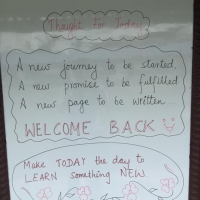 Thought for Today
A new journey to be started,
A new promise to be fulfilled
A new page to be written
WELCOME BACK
Make TODAY the day to
LEARN something NEW